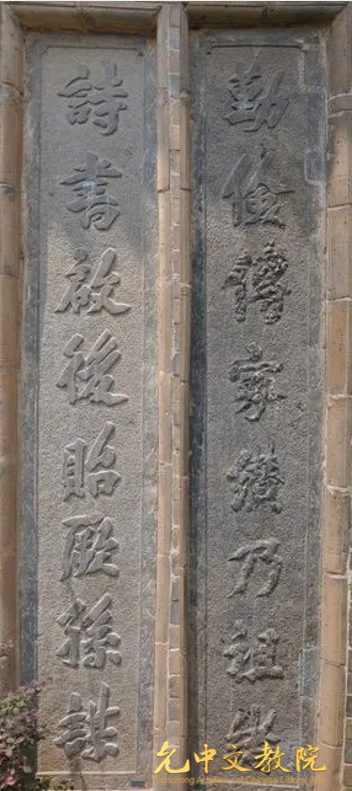 勤儉傳家纘乃祖
詩書啟後貽厥孫謀
允中文教院
Yunzhong Academy of Chinese Liberal Arts